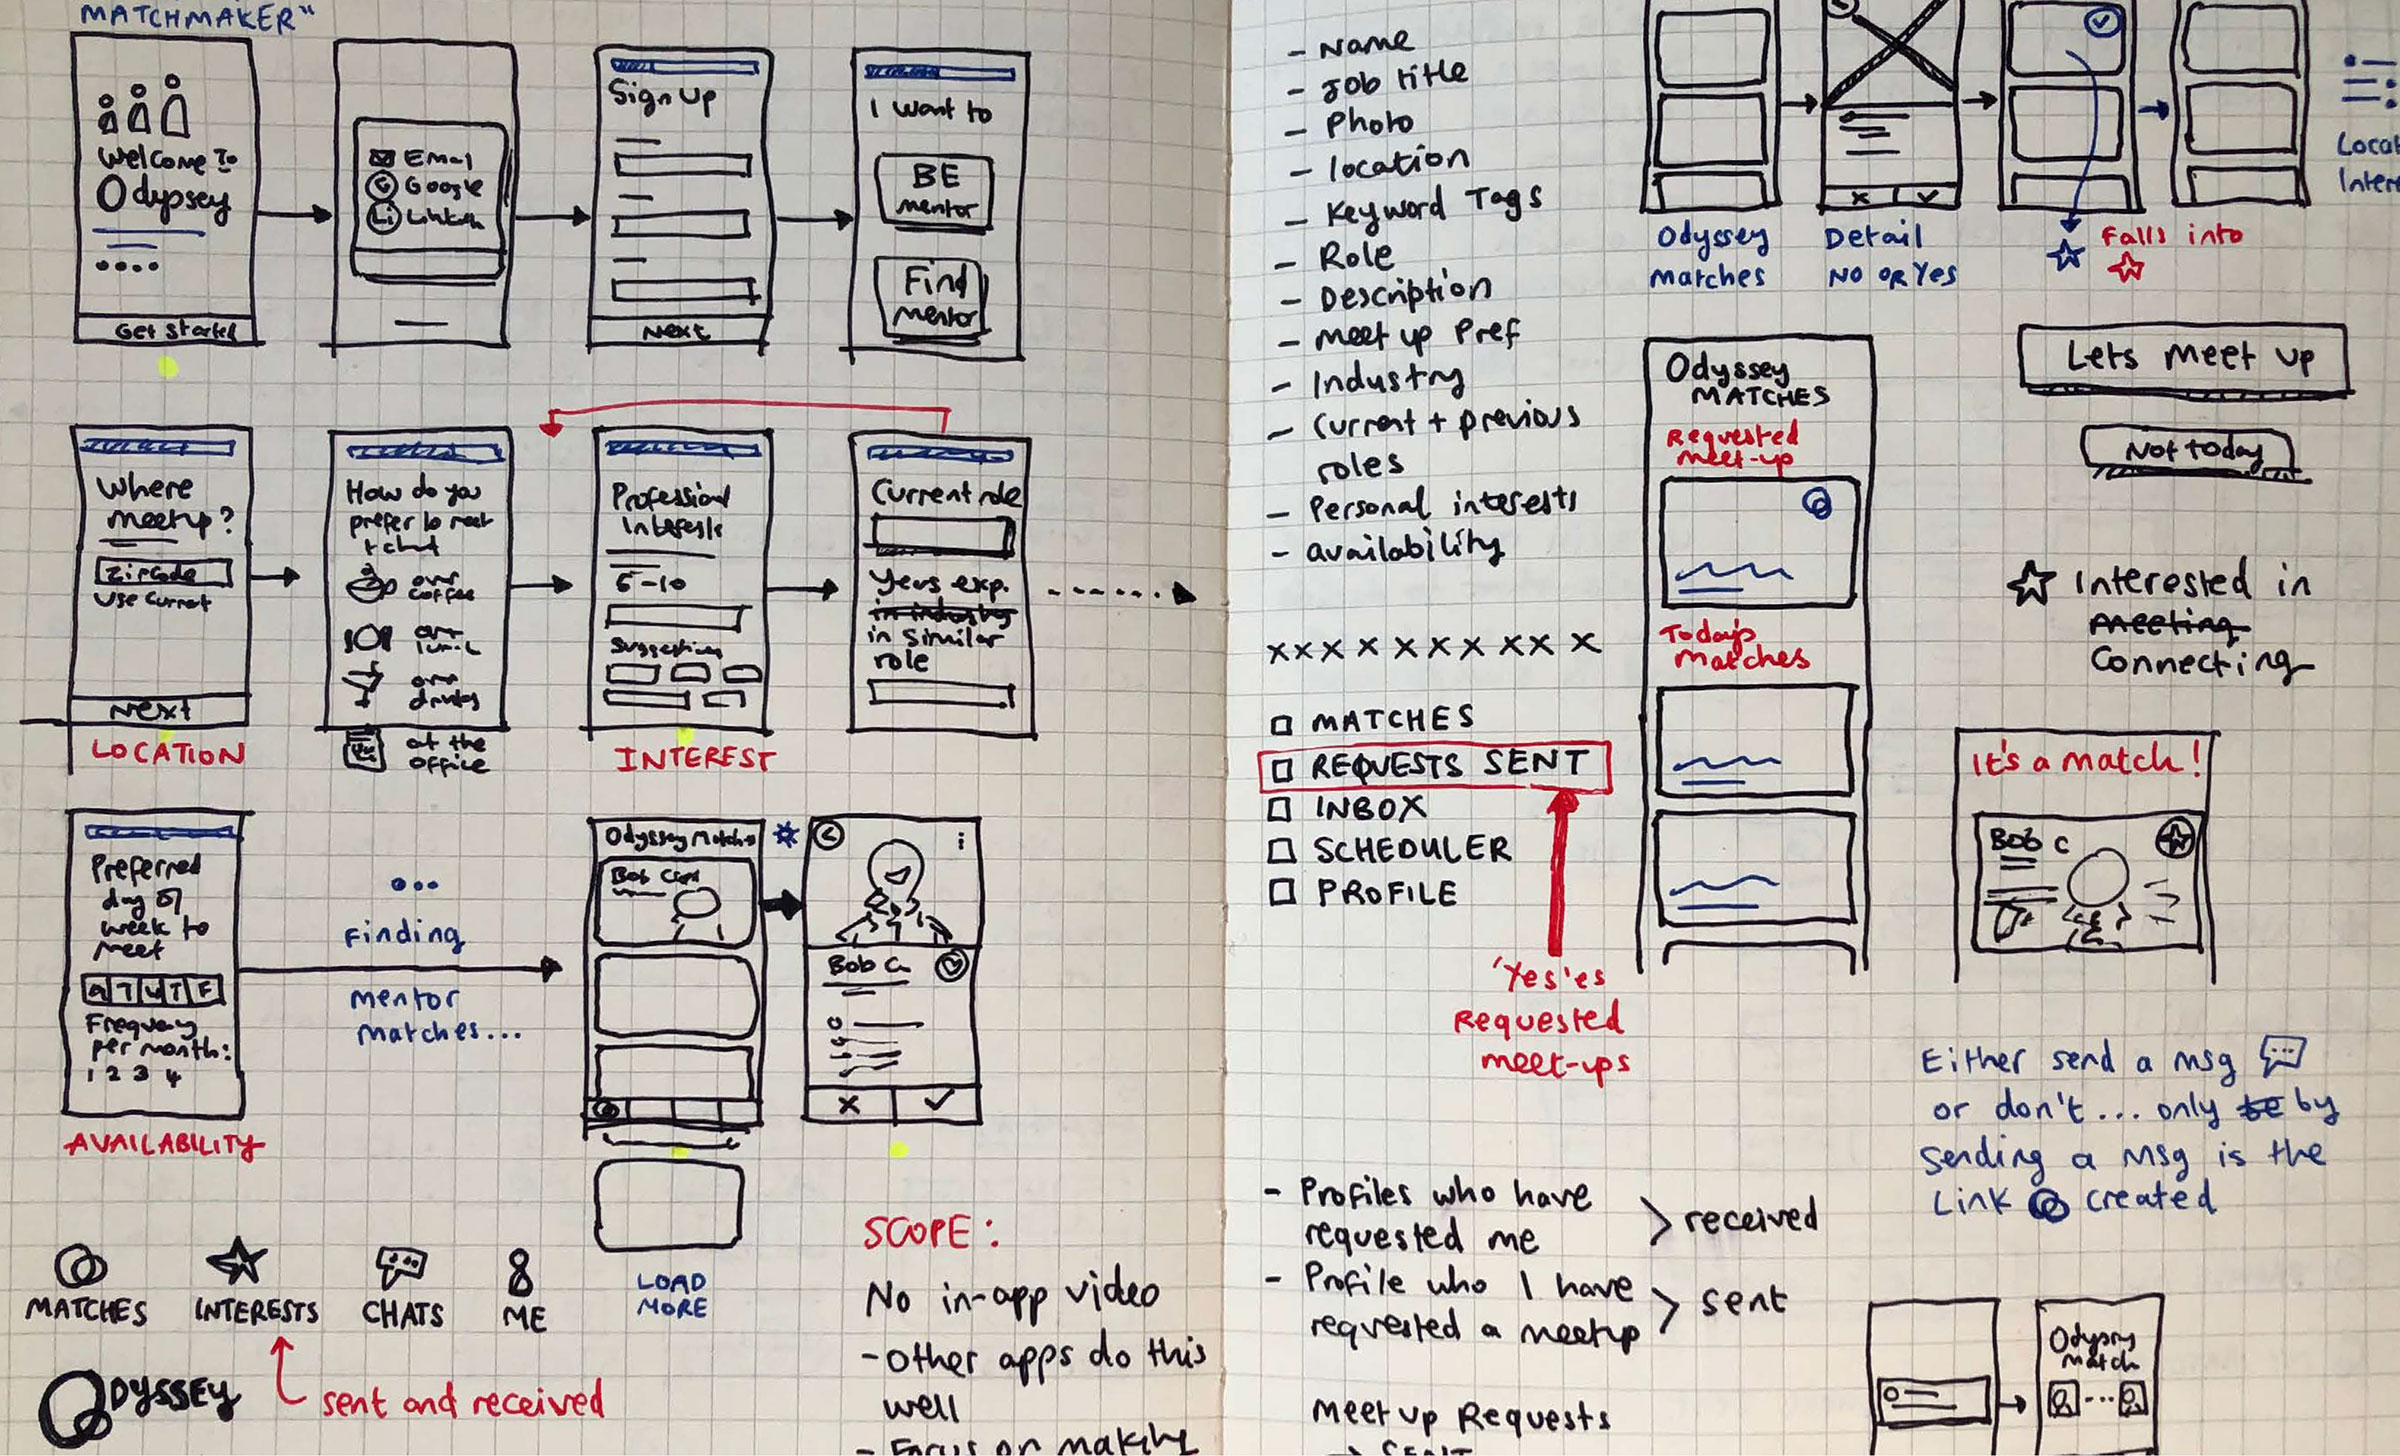 MATCHMAKER"
Welcome To
Odyssey
Get Started
Email
Google
Sign Up
Next
I want to
BE
mentor
Find
mentor
Where
meetup?
Zipcode
Next
LOCATION
How do you
prefer to meet
+ chat
over
coffee
over
lunch
over
drinks
at the
office
Professional
Interests
5-10
Suggestions
INTEREST
Current role
Years exp.
in industry
in similar
role
Preferred
day of
week to
meet
M T W T F
Frequency
per month:
1 2 3 4
AVAILABILITY
...
Finding
mentor
matches...
Odyssey Matches
Bob
Bob C
LOAD
MORE
MATCHES
INTERESTS
CHATS
ME
ODYSSEY
sent and received
SCOPE:
No in-app video
-other apps do this
well
- Focus on making
- Name
- Job title
- Photo
- location
- Keyword Tags
- Role
- Description
- meet up Pref
- Industry
- Current + previous
roles
- Personal interests
- availability
xxx x x x x x x x
MATCHES
REQUESTS SENT
INBOX
SCHEDULER
PROFILE
'Yes'es
Requested
meet-ups
- Profiles who have
requested me
> received
- Profile who I have
requested a meetup
> sent
meet up Requests
→ SENT
Odyssey
matches
Detail
NO OR Yes
Falls into
Odyssey
MATCHES
Requested
meet-up
Today's
matches
Lets meet up
Not today
Interested in
meeting
Connecting
It's a match!
Bob C
Either send a msg
or don't... only be by
sending a msg is the
Link created
Odyssey
match
...